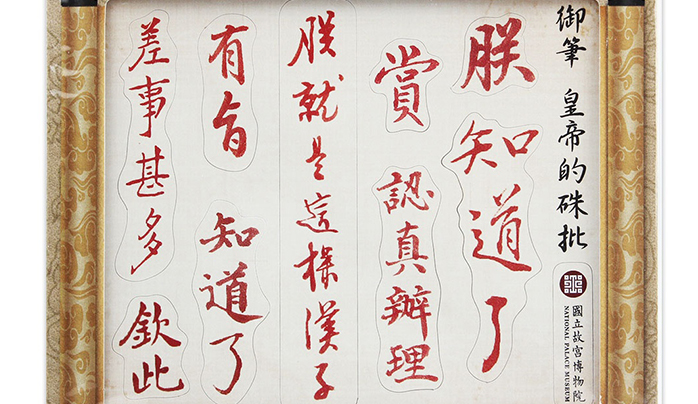 御筆 皇帝的硃批
國立故宮博物院
NATIONAL PALACE MUSEUM
朕知道了
賞 認真辦理
朕就是這樣漢子
有旨 知道了
差事甚多 欽此